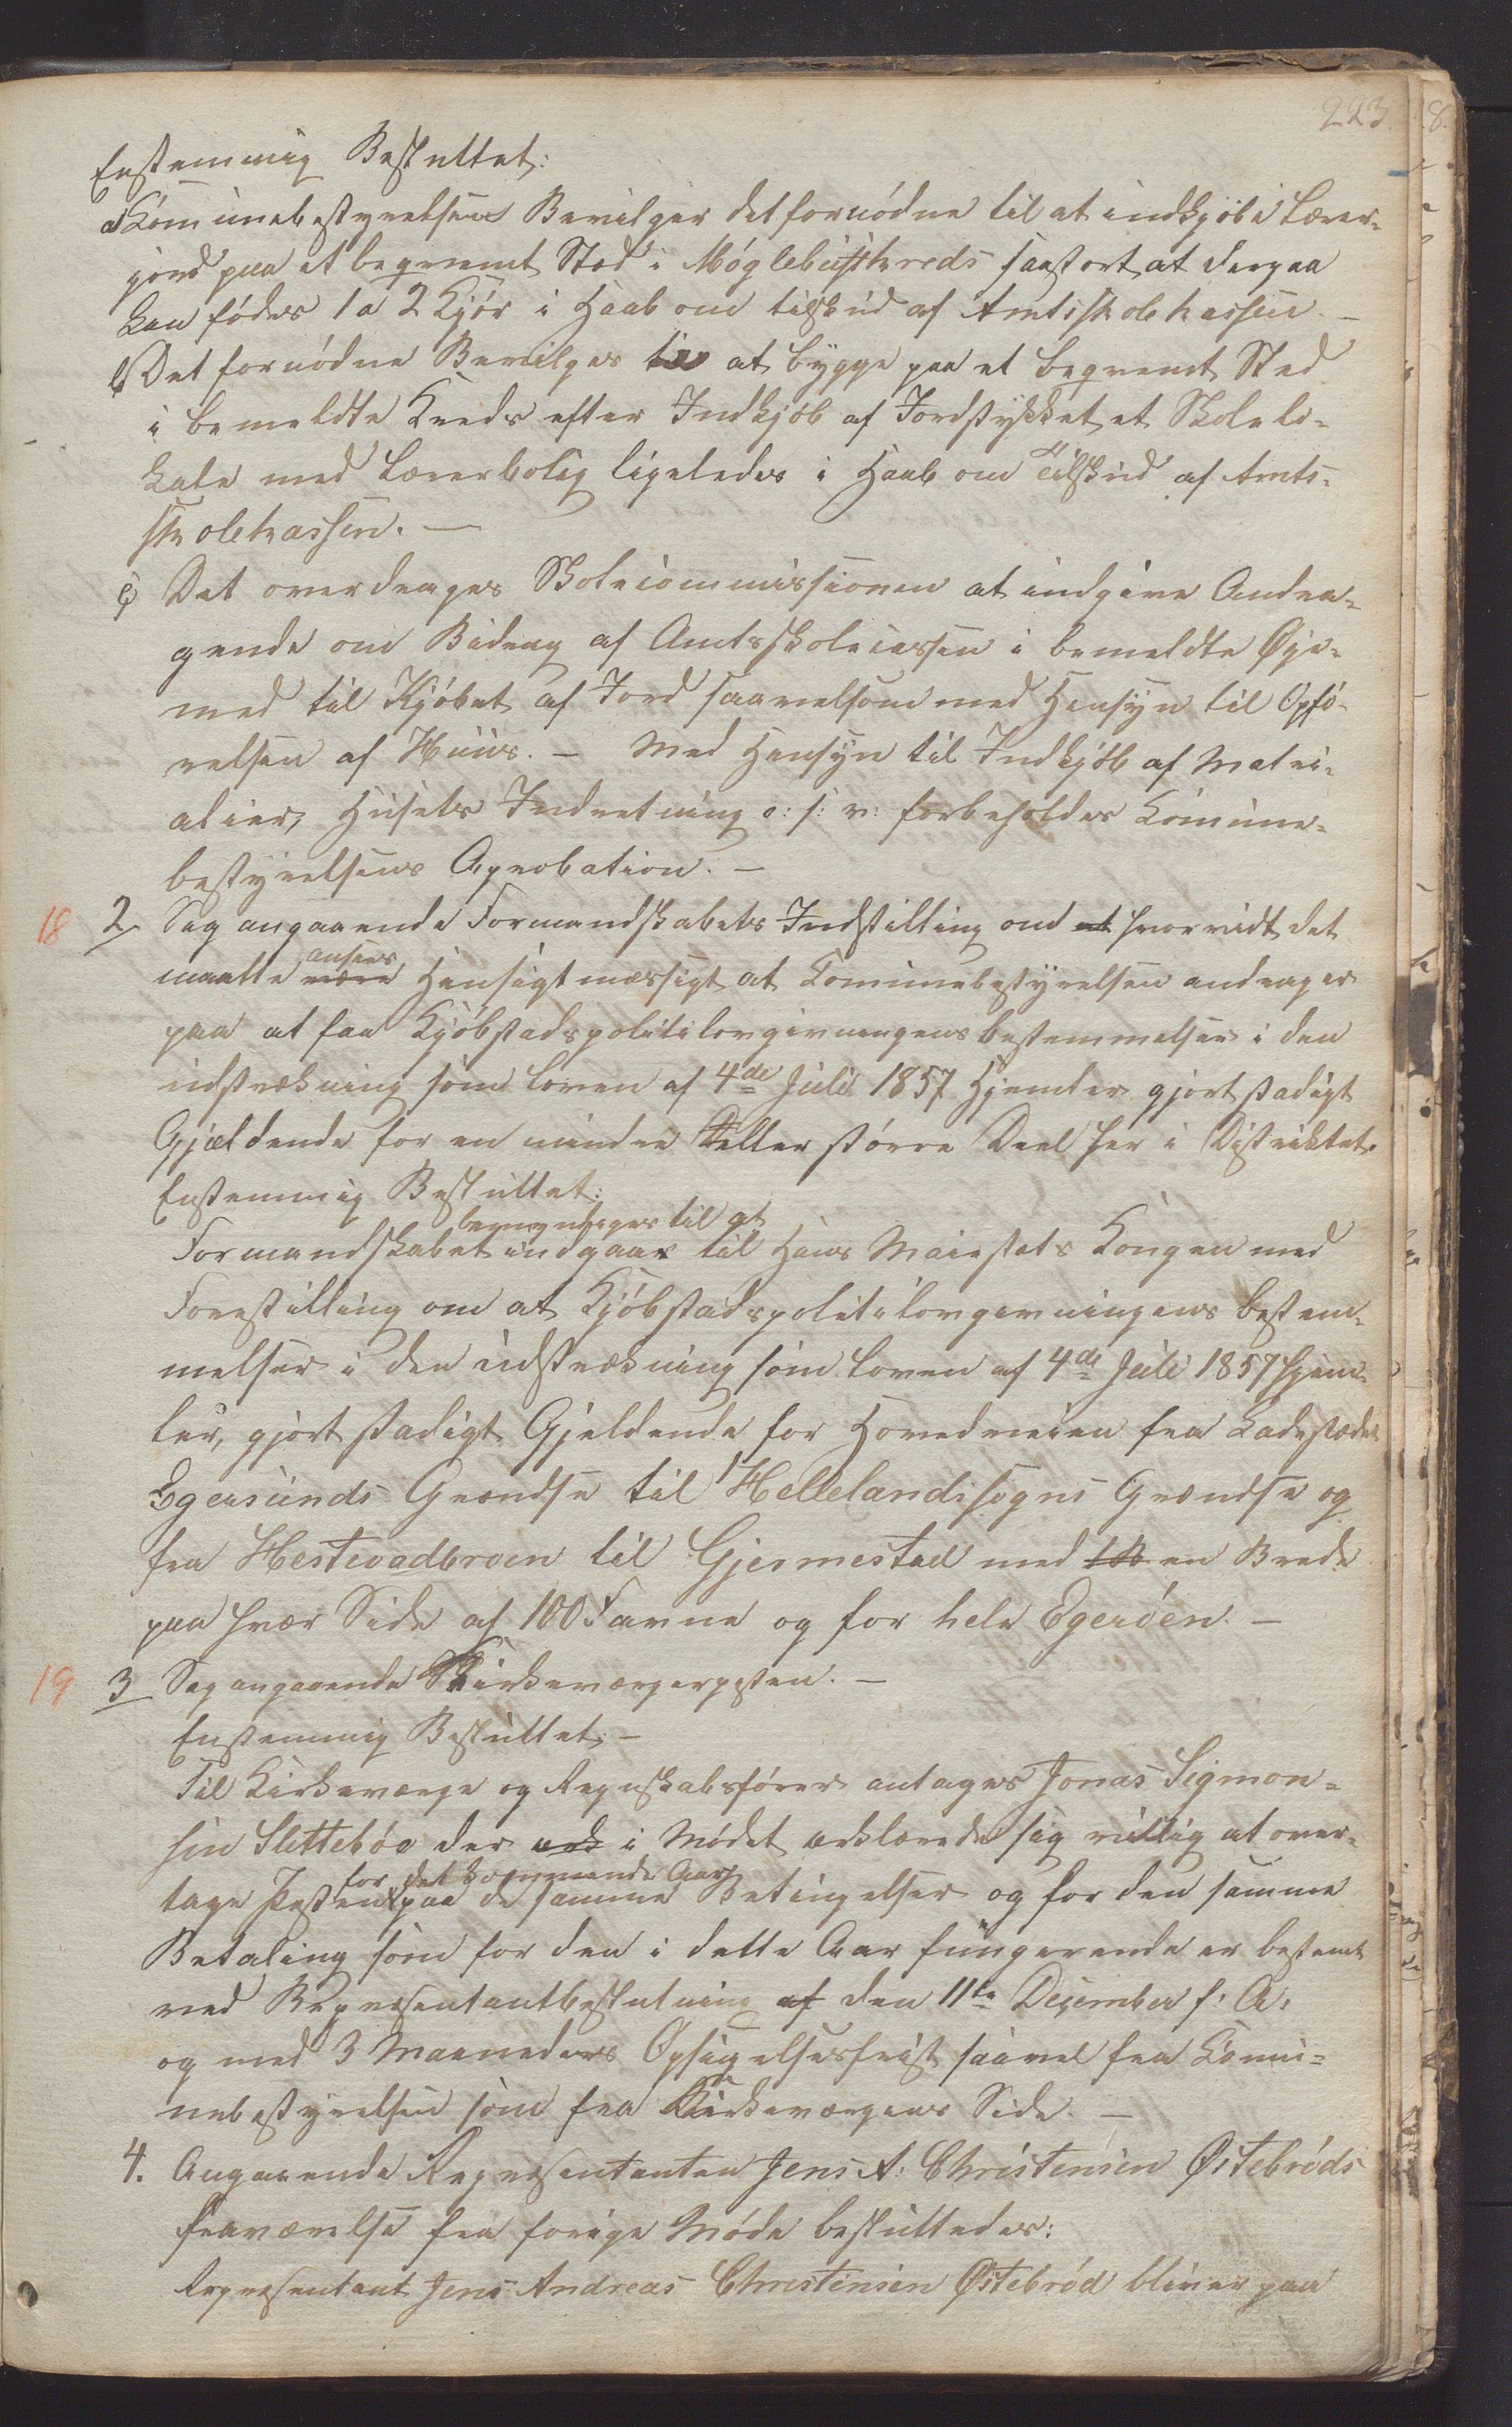 223.
Enstemmig Besluttet:
a) Komunebestyrelsen Bevilger det fornødne til at indkjøbe Lærer-
jord paa et beqvemt Sted i Møglebustkreds saastort at derpaa
kan fødes 1 a 2 Kjør i Haab om tilskud af Amtsskolekassen. —
b) Det fornødne Bevilges til at bygge paa et beqvemt Sted
i bemeldte Kreds efter Indkjøb af Jordstykket et Skolelo-
kale med Lærerbolig ligeledes i Haab om Tilskud af Amts-
skolekassen. —
c) Det overdrages Skolecommissionen at indgive Andra-
gende om Bidrag af Amtsskolecassen i bemeldte Øje-
med til Kjøbet af Jord saavelsom med Hensyn til Opfø-
relsen af Huus. — Med Hensyn til Indkjøb af Matri-
alier, Husets Indretning o: s: v: forbeholdes Komune-
bestyrelsens Aprobation. —
18 2 Sag angaaende Formandskabets Indstilling om at hvorvidt det
ansees
maatte være Hensigtmæssigt at Comunebestyrelsen andrager
paa at faa Kjøbstadspolitilovgivningens bestemmelser i den
udstrækning som Loven af 4de Juli 1857 Hjemler gjort stadigt
Gjældende for en mindre eller større Deel her i Distriktet.
Enstemmig Besluttet:
bemyndiges til at
Formandskabet indgaar til Hans Maiestæts Kongen med
Forestilling om at Kjøbstadspolitilovgivningens bestem-
melser i den udstrækning som Loven af 4de Juli 1857 hjem-
ler, gjort stadigt Gjeldende for Hovedveien fra Ladestædet
Egersunds Grændse til Hellelandssogns Grændse og
fra Hestevadbroen til Gjermestad med en Brede
paa hver Side af 100 Favne og for hele Egerøen. —
19 3 Sag angaaende Kirkeværgerposten. —
Enstemmig Besluttet: —
Til Kirkeværge og Regnskabsfører antages Jonas Sigmon-
sen Slettebøe der erk i Mødet erklærede sig villig at over-
for det kommende Aar
tage Posten paa de samme Betingelser og for den samme
Betaling som for den i dette Aar fungerende er bestemt
ved Repræsentantbeslutning af den 11te Desember f: A:
og med 3 Maaneders Opsigelsesfrist saavel fra Komu-
nebestyrelsen som fra Kirkeværgens Side. —
4. Angaaende Repræsentanten Jens A: Christensen Østebrøds
fraværelse fra forige Møde besluttedes:
Repræsentant Jens Andreas Christensen Østebrød bliver paa